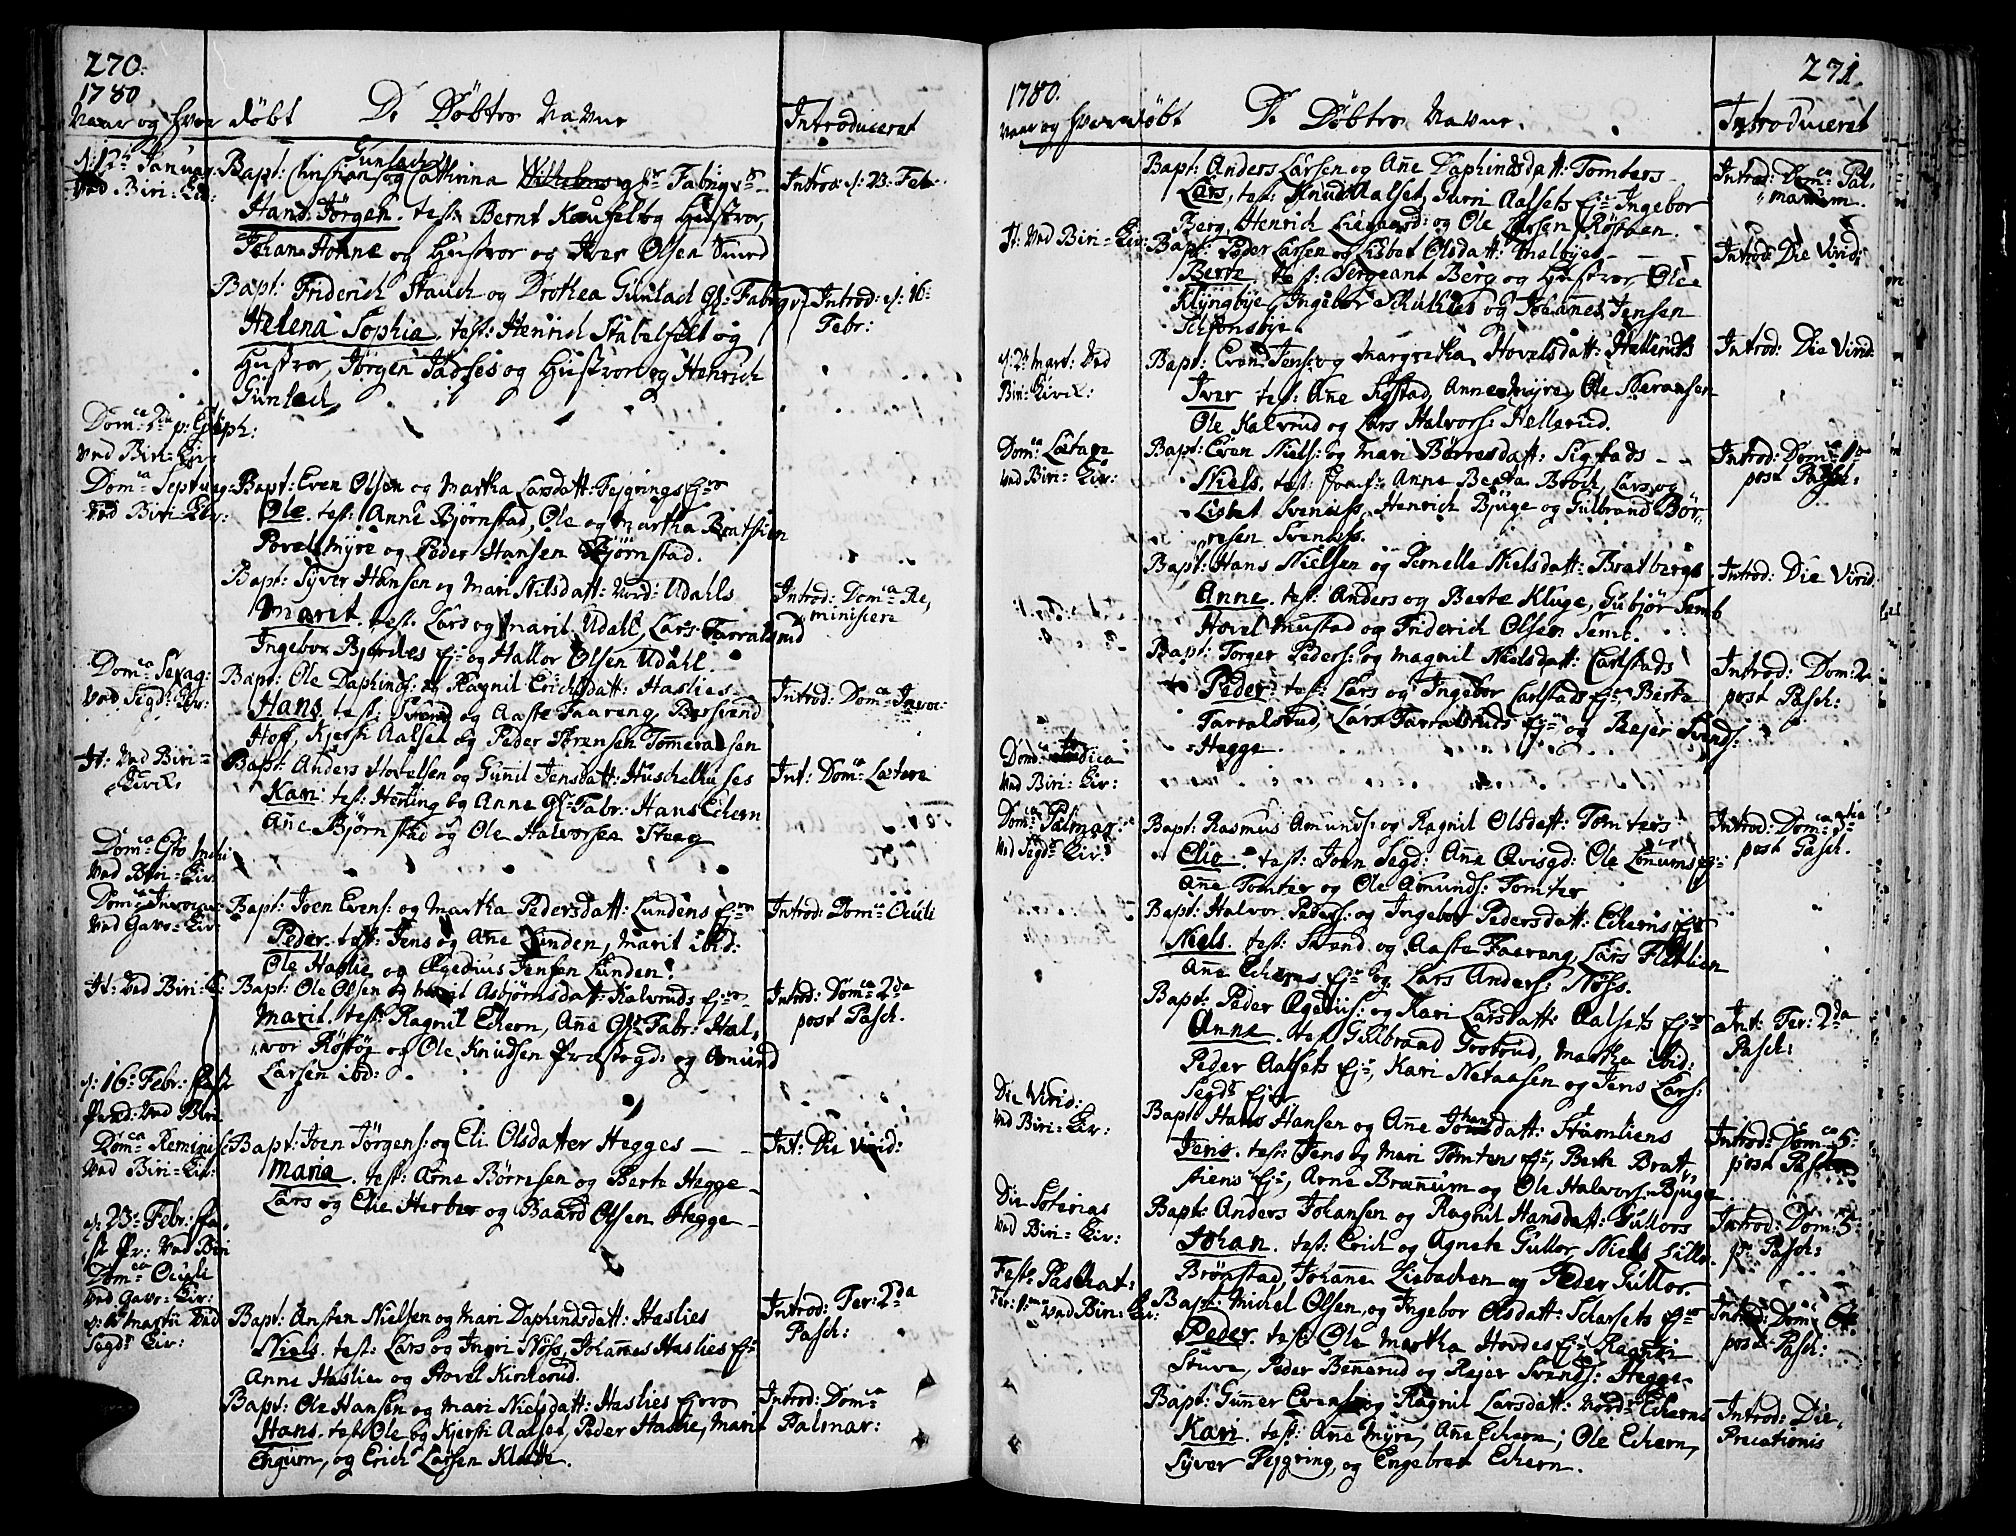 270.
1780
Naar og hvor døbt
De Døbtes Navne
Introduceret
d: 12te Januar
Ved Biri-Kir:
Gunlach
Bapt: Christians og Cathrina Wilhelms gl: Fabriqv:
Hans Jörgen. test: Bernt Kaufelt og Hustroe,
Johan Honne og Hustroe og Iver Olsen Smed
Introd: d: 23. Feb:
Bapt: Friderich Stauch og Drothea Gunlach gl: Fabriqv:
Helena Sophia. test: Henrich Stabelfelt og
Hustroe, Jörgen og Hustroe og Henrich
Gunlach
Introd: d: 16
Febr:
Domca 1ma p: Epiph:
Ved Biri-Kir:
Domca Septuag:
Ved Biri-Kir:
Bapt: Even Olsen og Martha Larsdatt: Fejgrings Ejer
Ole. test: Anne Bjørnstad, Ole og Martha
Povel Myre og Peder Hansen Bjørnstad.
Bapt: Syver Hansen og Mari Nilsdatt: Nord: Udahls
Marit. test: Lars og Marit Udahl, Lars Farralsrud
Ingebor Bjerches Ej: og Hallor Olsen Udahl
Introd: Domca Re,
miniscere
Domca Sexag:
Ved Segd: Kir:
Bapt: Ole Daphinds: og Ragnil Erichsdatt: Haslies
Hans. test: Svend og Aaste Faareng, Bersvend
Hoff, Kjersti Aalset og Peder Törensen Tomeraasen
Introd: Domca Invoc:
It: Ved Biri-
Kirk.
Bapt: Anders Hovelsen og Gunnil Jensdatt:
Kari. test: Herting og Anne gl: Fabr: Hans Echern
Ane Bjørnstad og Ole Halvorsen Steeg
Int: Dom: Lætare
Domca Esto Mihi
Ved Biri-Kir:
Domca Invocav:
Ved Gavs-Kir:
Bapt: Joen Evens: og Martha Pedersdatt: Lundens Ejer
Peder. test: Jens og Ane Lunden, Marit ibid:
Ole Haslie og Ægedius Jensen Lunden.
Introd: Domca Oculi
It: Ved Biri-K:
Bapt: Ole Olsen og Marit Asbjørnsdatt: Kalvruds Ejer
Marit. test: Ragnil Echern, Ane gl: Fabr: Hal,
vor Røstøj og Ole Knudsen Præstegd: og Amund
Larsen ibd:
Introd: Domca 2da
post Pasch.
d: 16: Febr: Fast
Pred: Ved Biri
Domca Reminisc:
Ved Biri-Kir:
Bapt: Joen Jørgens: og Eli Olsdatter Hegges
Maria. test: Arne Børresen og Berte Hegge
Lars og Elie Herber og Baard Olsen Hegge
Int: Die Virid:
d: 23: Febr: Fa,
st Pr: Ved Biri
Domca Oculi
Ved Gavs-Kir:
Martii Ved
Segd: Kir:
Bapt: Ansten Nielsen og Mari Daphindsdatt: Haslies
Niels. test: Lars og Ingri Nöss, Johannes Haslies Ej:
Anne Haslie og Hovel Kirkerud.
Introd: Fer: 2da
Pasch:
Bapt: Ole Hansen og Mari Nielsdatt: Haslies Ejere
Hans. test: Ole og Kjersti Aalset, Peder Haslie, Marit
Engum, og Erich Larsen Kladte.
Introd: Domca
Palmar:
271.
1780.
Naar og hvor døbt
De Døbtes Navne.
Introduceret
Bapt: Anders Larsen og Ane Daphindsdatt: Tomters
Lars. test: Knud Aalset, Guri Aalsets Ej: Ingebor
Berg, Henrich og Ole Larsen Røstøen.
Introd: Domca Pal,
marum.
It: Ved Biri-Kir:
Bapt: Peder Larsen og Lisbet Olsdatt: Melbyes
Berte. test: Sergeant Berg og Hustroe, Ole
Klyngbye, Ingebor Schulhes og Johannes Jensen
Introd: Die Virid:
d: 2: Mart: Ved
Biri-Kirk:
Bapt: Even Jens: og Margretha Hovelsdatt: Helleruds
Iver test: Ane Sigstad, Anne Myre, Ole Neraasen
Ole Kalvrud og Lars Halvors: Hellerud.
Introd: Die Virid:
Domca Lætare
Ved Biri-Kir:
Bapt: Even Niels: og Mari Børresdatt: Sigstads
Niels. test: Anne Berta Broch, Lars og
Lisbet Svennes, Henrich Bjuge og Gulbrand Bør-
resen Svennes.
Introd: Domca 1ma
post Pasch:
Bapt: Hans Nielsen og Pernelle Nielsdatt: Bratbergs
Anne. test: Anders og Berte Kluge, Gubjør Semb
Hovel Mustad og Friderich Olsen Semb.
Introd: Die Virid:
Bapt: Torger Peders: og Magnil Nielsdatt: Carlstads
Peder. test: Lars og Ingebor Carlstads Ej: Berte
Farralsrud, Lars Farralsruds Ej: og Rejer Svends:
Hegge.
Introd: Dom: 2
post Pasch:
Domca Judica
Ved Biri-Kir:
Domca Palmar:
Ved Segd: Kir:
Bapt: Rasmus Amunds: og Ragnil Olsdatt: Tomters
Elie. test: Joen Segd: Ane Qvisgd: Ole Lønnums Ej:
Ane Tomter og Ole Amunds: Tomter
Introd: Domca
post Pasch.
Bapt: Halvor Peders: og Ingebor Pedersdatt: Echerns Ejer
Niels. test: Svend og Aaste Faareng, Lars Flatlien
Ane Echerns Ej: og Lars Anders: Nöss.
Bapt: Peder Ægedius: og Kari Larsdatt: Aalsets Ejer
Anne. test: Gulbrand Grøtrud, Martha ibid:
Peder Aalsets Ej: Kari Neraasen og Jens Lars:
Segds Ejer
Int: Fer: 2da
Pasch:
Die Virid:
Ved Biri-Kir:
Bapt: Hans Hansen og Ane Johansdatt: Stumliens
Jens. test: Jens og Mari Tomtens Ej: Berte Brat,
liens Ej: Arne Brænnum og Ole Halvors: Bjuge
Introd: Domca 5
post Pasch
Die Soterias
Ved Biri-Kir:
Bapt: Anders Johansen og Ragnil Hansdatt: Gullors
Johan. test: Erich og Agnete Gullor, Niels Lille
Brönstad, Johanne Liebachen og Peder Gullor.
Introd: Dom: 5
p: Pasch:
Fest: Paschat:
Fer: 1ma Ved Biri-Kir:
Bapt: Michel Olsen og Ingebor Olsdatt: Scharsets Ejer
Peder. test: Ole Martha Hovdes Ej: Ragnil
Stuve, Peder Bennerud og Rejer Svends: Hegge
Introd: Domca
post Pasch:
Bapt: Gunner Evens: og Ragnil Larsdatt: Nord: Echerns
Kari. test: Ane Myre, Ane Echern, Ole Echern,
Syver Fejgring, og Engebret Echern.
Introd: Die
Precationis